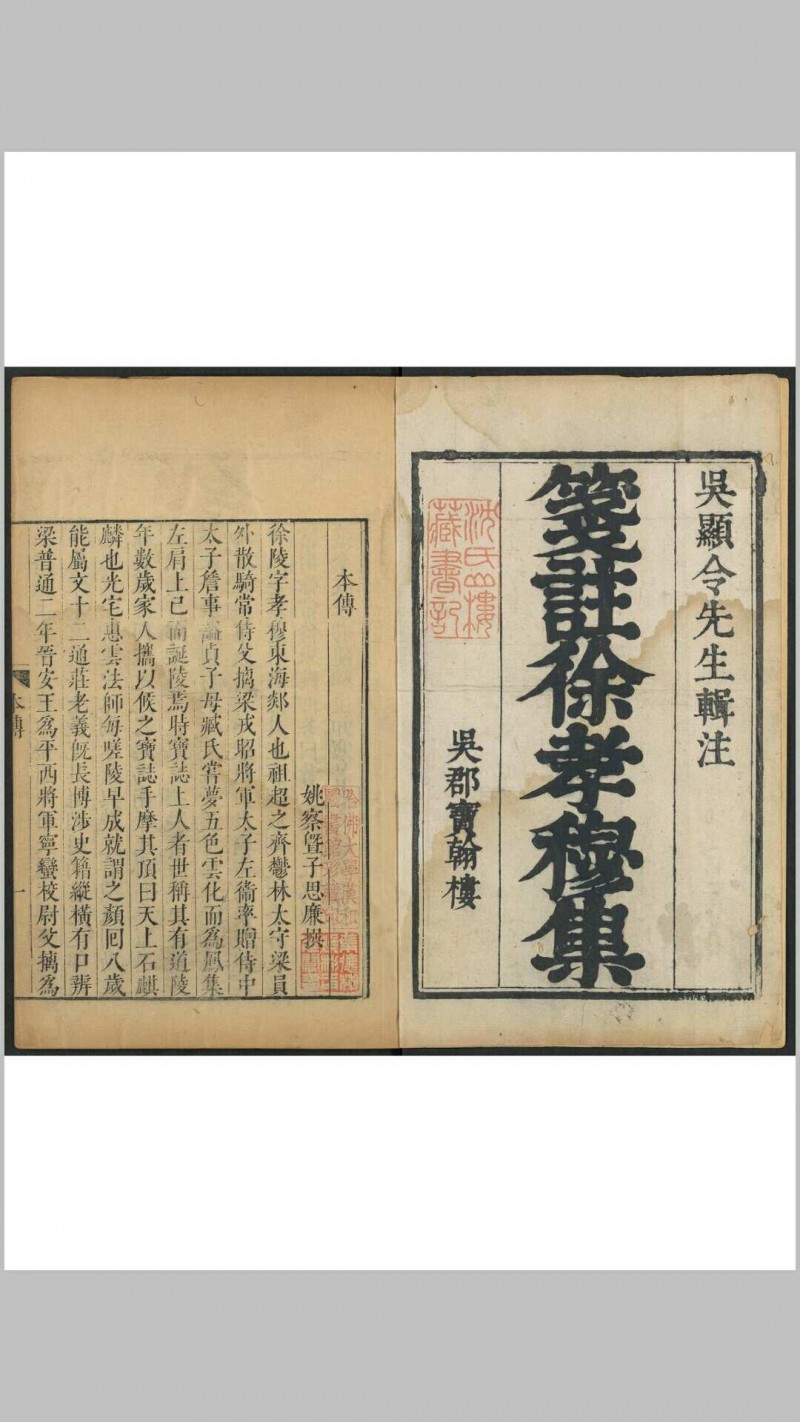 吳顯令先生輯注
箋註徐孝穆集
吳郡寶翰樓
沈氏山樓
藏書記
本傳
姚察曁子思廉撰
徐陵字孝穆東海郯人也祖超之齊鬱林太守梁員
外散騎常侍父摛梁戎昭將軍太子左衞率贈侍中
太子詹事諡貞子母臧氏嘗夢五色雲化而為鳳集
左肩上已而誕陵焉時寶誌上人者世稱其有道陵
年數歲家人攜以候之寶誌手摩其頂曰天上石麒
麟也光宅惠雲法師每嗟陵早成就謂之顏回八歲
能屬文十二通莊老義旣長博涉史籍縱橫有口辨
梁普通二年晉安王為平西將軍寧蠻校尉父摛為
本傳
一